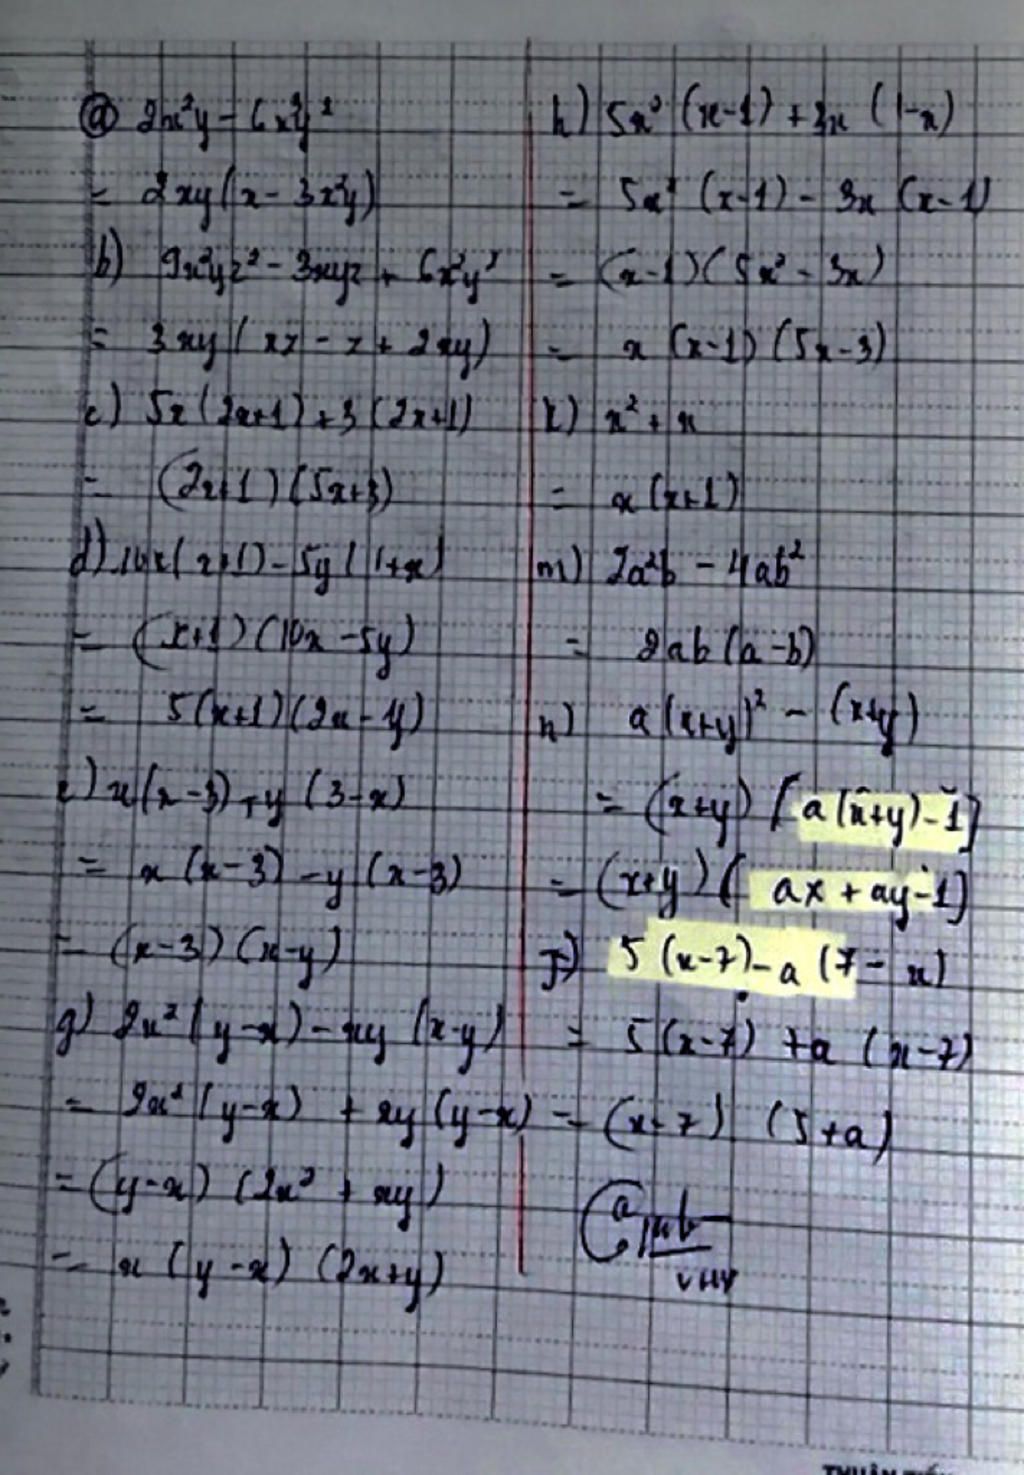 a) 2x²y - 6x³y²
= 2xy(x - 3x²y)
b) 9x²yz² - 3xyz + 6x²y²
= 3xy(xz - z + 2xy)
c) 5x(2x+1)+3(2x+1)
= (2x+1)(5x+3)
d) 10x(x+1) - 5y(1+x)
= (x+1)(10x - 5y)
= 5(x+1)(2x - y)
e) x(x-3)+y(3-x)
= x(x-3) - y(x-3)
= (x-3)(x-y)
g) 2x²(y-x) - xy(x-y)
= 2x²(y-x) + xy(y-x)
= (y-x)(2x² + xy)
= x(y-x)(2x+y)
h) 5x²(x-1)+3x(1-x)
= 5x²(x-1) - 3x(x-1)
= (x-1)(5x² - 3x)
= x(x-1)(5x-3)
k) x² + x
= x(x+1)
m) 2a²b - 4ab²
= 2ab(a-b)
n) a(x+y)² - (x+y)
= (x+y)[a(x+y)-1]
= (x+y)(ax + ay-1]
5(x-7)-a(7-x)
= 5(x-7)+a(x-7)
= (x-7)(5+a)